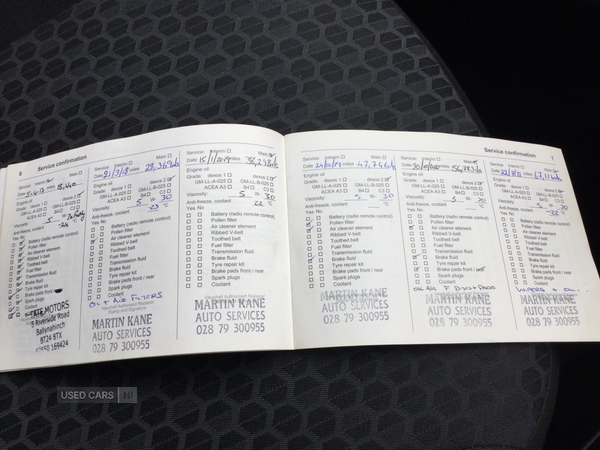 6 Service confirmation
Service confirmation 7
Service: Interim Main
Date miles 18,440
Engine oil
Grade: dexos 1 dexos 2
GM-LL-A-025 GM-LL-B-025
ACEA A3 B4 C3
Viscosity: 5 30
Anti-freeze, coolant
Yes No
Battery (radio remote control)
Pollen filter
Air cleaner element
Ribbed V-belt
Toothed belt
Fuel filter
Transmission fluid
Brake fluid
Tyre repair kit
Brake pads front / rear
Spark plugs
Coolant
TATE MOTORS
5 Riverside Road
Ballynahinch
BT24 8TX
Service: Interim Main
Date 21/3/18 miles 28,369
Engine oil
Grade: dexos 1 dexos 2
GM-LL-A-025 GM-LL-B-025
ACEA A3 B4 C3
Viscosity: 5 = 30
Anti-freeze, coolant
Yes No
Battery (radio remote control)
Pollen filter
Air cleaner element
Ribbed V-belt
Toothed belt
Fuel filter
Transmission fluid
Brake fluid
Tyre repair kit
Brake pads front / rear
Spark plugs
Coolant
OIL + AIR FILTERS
MARTIN KANE
AUTO SERVICES
028 79 300955
Service: Interim Main
Date 15/1/2019 miles 36,238
Engine oil
Grade: dexos 1 dexos 2
GM-LL-A-025 GM-LL-B-025
ACEA A3 B4 C3
Viscosity: 5 = 30
Anti-freeze, coolant -22
Yes No
Battery (radio remote control)
Pollen filter
Air cleaner element
Ribbed V-belt
Toothed belt
Fuel filter
Transmission fluid
Brake fluid
Tyre repair kit
Brake pads front / rear
Spark plugs
Coolant
MARTIN KANE
AUTO SERVICES
028 79 300955
Service: Interim Main
Date miles 47,746
Engine oil
Grade: dexos 1 dexos 2
GM-LL-A-025 GM-LL-B-025
ACEA A3 B4 C3
Viscosity: 5 = 30
Anti-freeze, coolant
Yes No
Battery (radio remote control)
Pollen filter
Air cleaner element
Ribbed V-belt
Toothed belt
Fuel filter
Transmission fluid
Brake fluid
Tyre repair kit
Brake pads front / rear
Spark plugs
Coolant
MARTIN KANE
AUTO SERVICES
028 79 300955
Service: Interim Main
Date miles 56,783
Engine oil
Grade: dexos 1 dexos 2
GM-LL-A-025 GM-LL-B-025
ACEA A3 B4 C3
Viscosity: 5 = 30
Anti-freeze, coolant
Yes No
Battery (radio remote control)
Pollen filter
Air cleaner element
Ribbed V-belt
Toothed belt
Fuel filter
Transmission fluid
Brake fluid
Tyre repair kit
Brake pads front / rear
Spark plugs
Coolant
MARTIN KANE
AUTO SERVICES
028 79 300955
Service: Interim Main
Date miles
Engine oil
Grade: dexos 1 dexos 2
GM-LL-A-025 GM-LL-B-025
ACEA A3 B4 C3
Viscosity: 5 = 30
Anti-freeze, coolant
Yes No
Battery (radio remote control)
Pollen filter
Air cleaner element
Ribbed V-belt
Toothed belt
Fuel filter
Transmission fluid
Brake fluid
Tyre repair kit
Brake pads front / rear
Spark plugs
Coolant
MARTIN KANE
AUTO SERVICES
028 79 300955
USED CARS NI